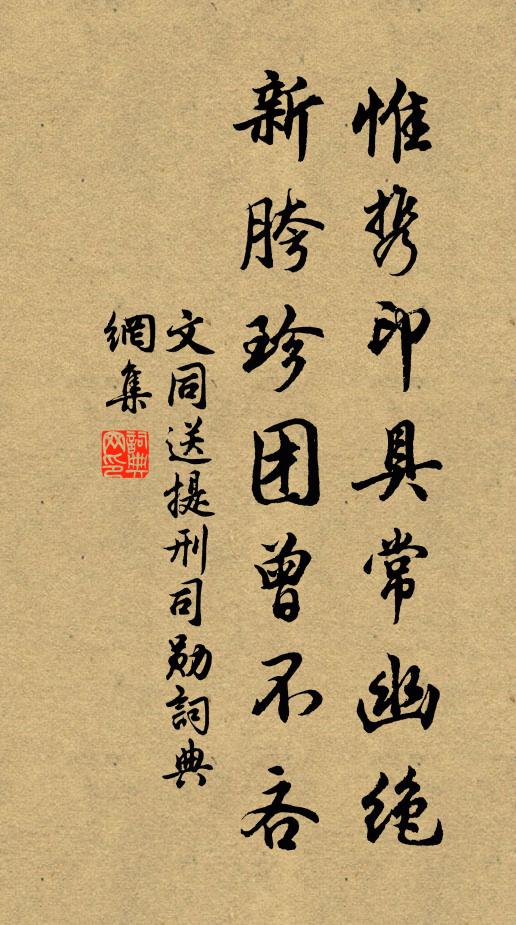 惟携印具常幽绝
新胯珍团曾不吝
文同送提刑司勋詞典
網集
詞典网印